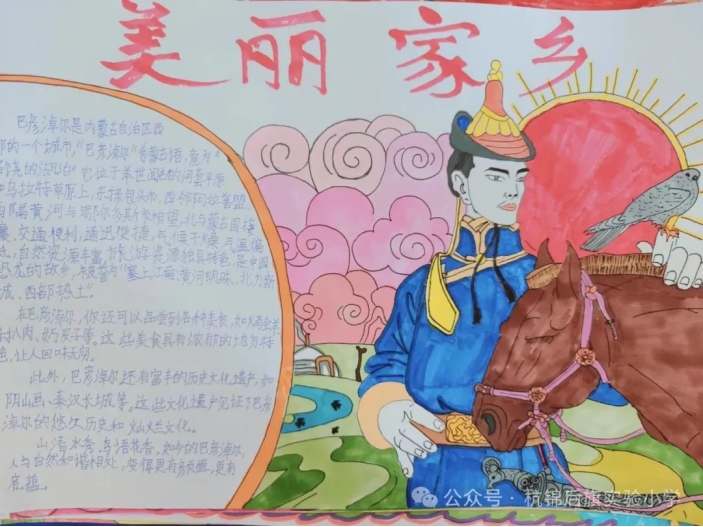 美丽家乡
巴彦淖尔是内蒙古自治区西
部的一个城市，"巴彦淖尔"系蒙古语，意为"
富饶的湖泊"它位于举世闻名的河套平原
和乌拉特草原上，东接包头市，西邻阿拉善盟，
南隔黄河与鄂尔多斯市相望，北与蒙古国接
壤，交通便利，通迅便捷，气候干燥，气温偏
低，自然资源丰富，旅游资源独具特色，是中国
恐龙的故乡，被誉为"塞上江南，黄河明珠、北方新
城、西部热土"。
在巴彦淖尔，你还可以品尝到各种美食，如
扒肉、奶皮子等。这些美食具有浓郁的地方特
色，让人回味无穷。
此外，巴彦淖尔还有富丰的历史文化遗产，如
阴山画、秦汉长城等，这些文化遗产见证了巴彦
淖尔的悠久历史和灿烂文化。
山清水秀，鸟语花香，如今的巴彦淖尔，
人与自然和谐相处，变得更有颜值，更有
底蕴。
公众号·杭锦后旗实验小学